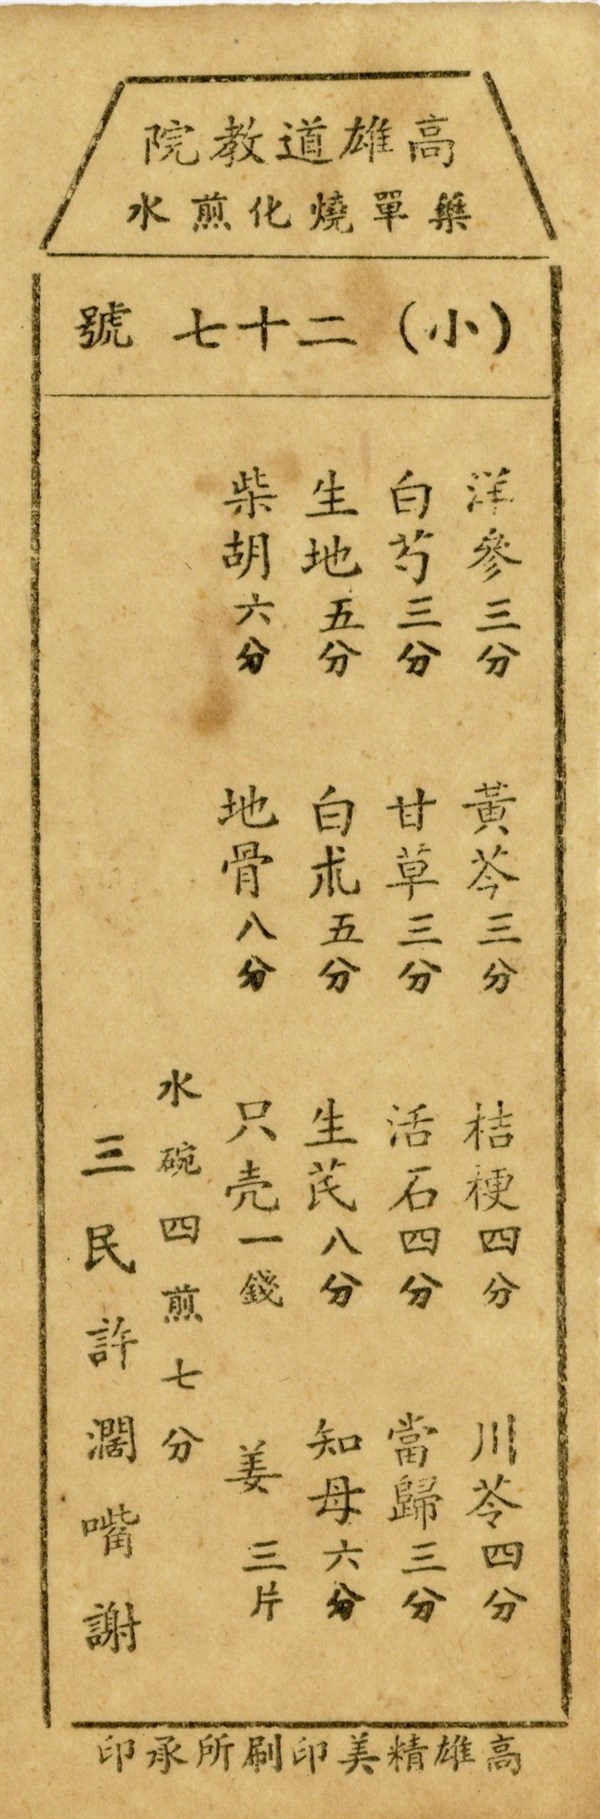 高雄道教院
藥單燒化煎水
（小）二十七號
洋參三分 黃芩三分 桔梗四分 川芩四分
白芍三分 甘草三分 活石四分 當歸三分
生地五分 白朮五分 生芪八分 知母六分
柴胡六分 地骨八分 只壳一錢 姜三片
水碗四煎七分
三民許濶嘴謝
高雄精美印刷所承印